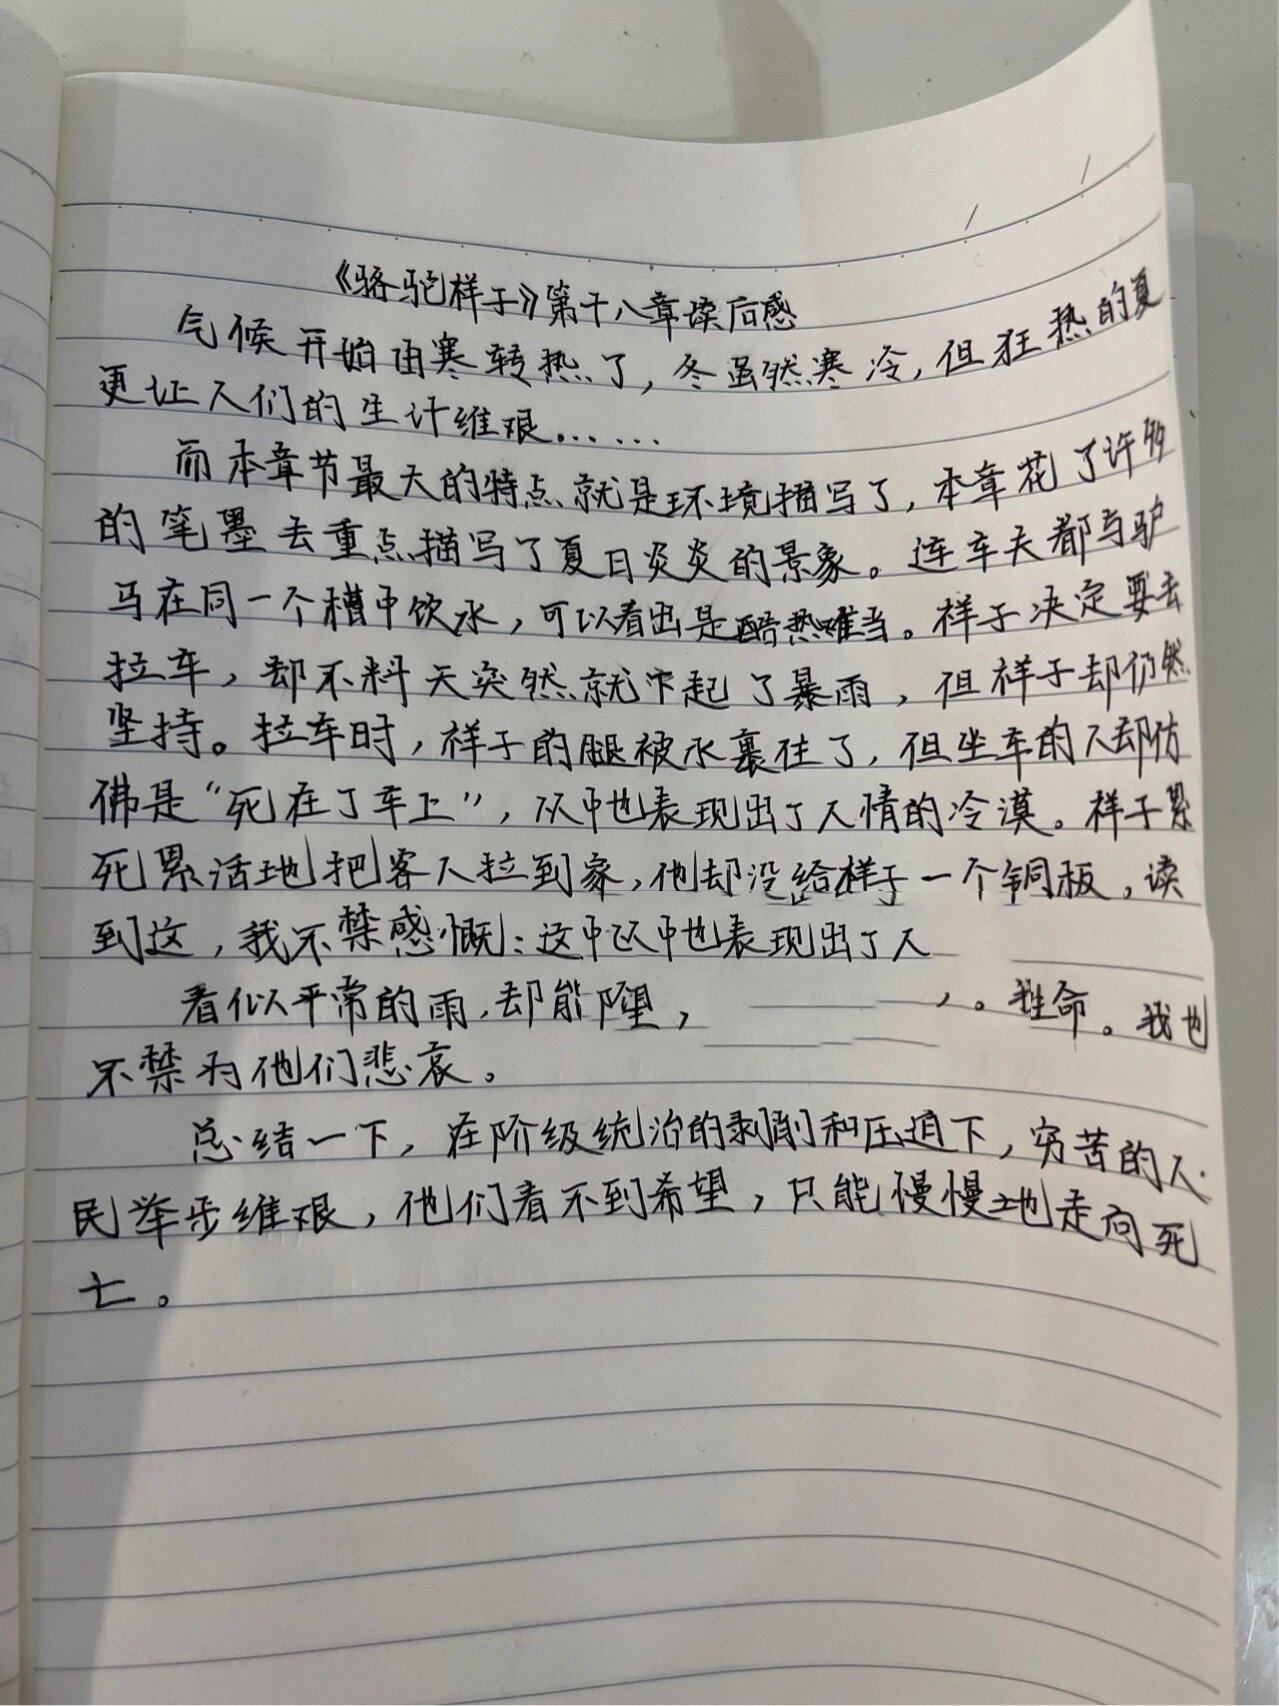 《骆驼样子》第十八章读后感
气候开始由寒转热了，冬虽然寒冷，但狂热的夏
更让人们的生计维艰……
而本章节最大的特点就是环境描写了，本章花了许多
的笔墨去重点描写了夏日炎炎的景象。连车夫都与驴
马在同一个槽中饮水，可以看出是酷热难当。样子决定要去
拉车，却不料天突然就下起了暴雨，但样子却仍然
坚持。拉车时，样子的腿被水裹住了，但坐车的人却仿
佛是“死在了车上”，从中也表现出了人情的冷漠。样子累
死累活地把客人拉到家，他却没给样子一个铜板，读
到这，我不禁感慨：这中从中也表现出了人
看似平常的雨，却能
。性命。我也
不禁为他们悲哀。
总结一下，在阶级统治的剥削和压迫下，穷苦的人
民举步维艰，他们看不到希望，只能慢慢地走向死
亡。